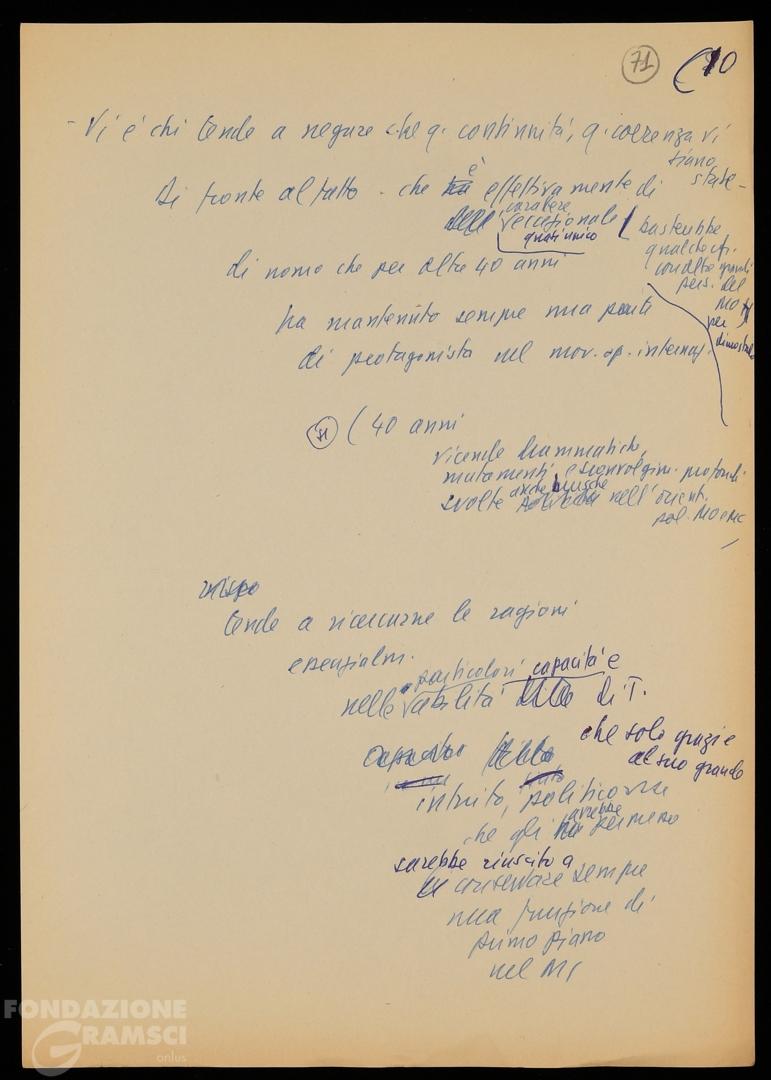 71 (10
- Vi è chi tende a negare che q. continuità, q. coerenza vi
siano
state -
Di fronte al fatto - che è effettivamente di
carattere
eccezionale
quasi unico
basterebbe
qualche
con altre grandi
pers. del
MO
per
dimostrarlo
di uomo che per oltre 40 anni
ha mantenuto sempre una parte
di protagonista nel mov. op. internaz.
SI ( 40 anni
vicende drammatiche,
mutamenti e sconvolgim. profondi
svolte anche brusche nell'orient.
pol. MO e MC
tende a ricercarne le ragioni
essenzialm.
particolari capacità e
nelle abilità di T.
che solo grazie
al suo grande
intuito, politico
che gli avrebbe permesso
sarebbe riuscito a
conservare sempre
una funzione di
primo piano
nel
FONDAZIONE
GRAMSCI
onlus